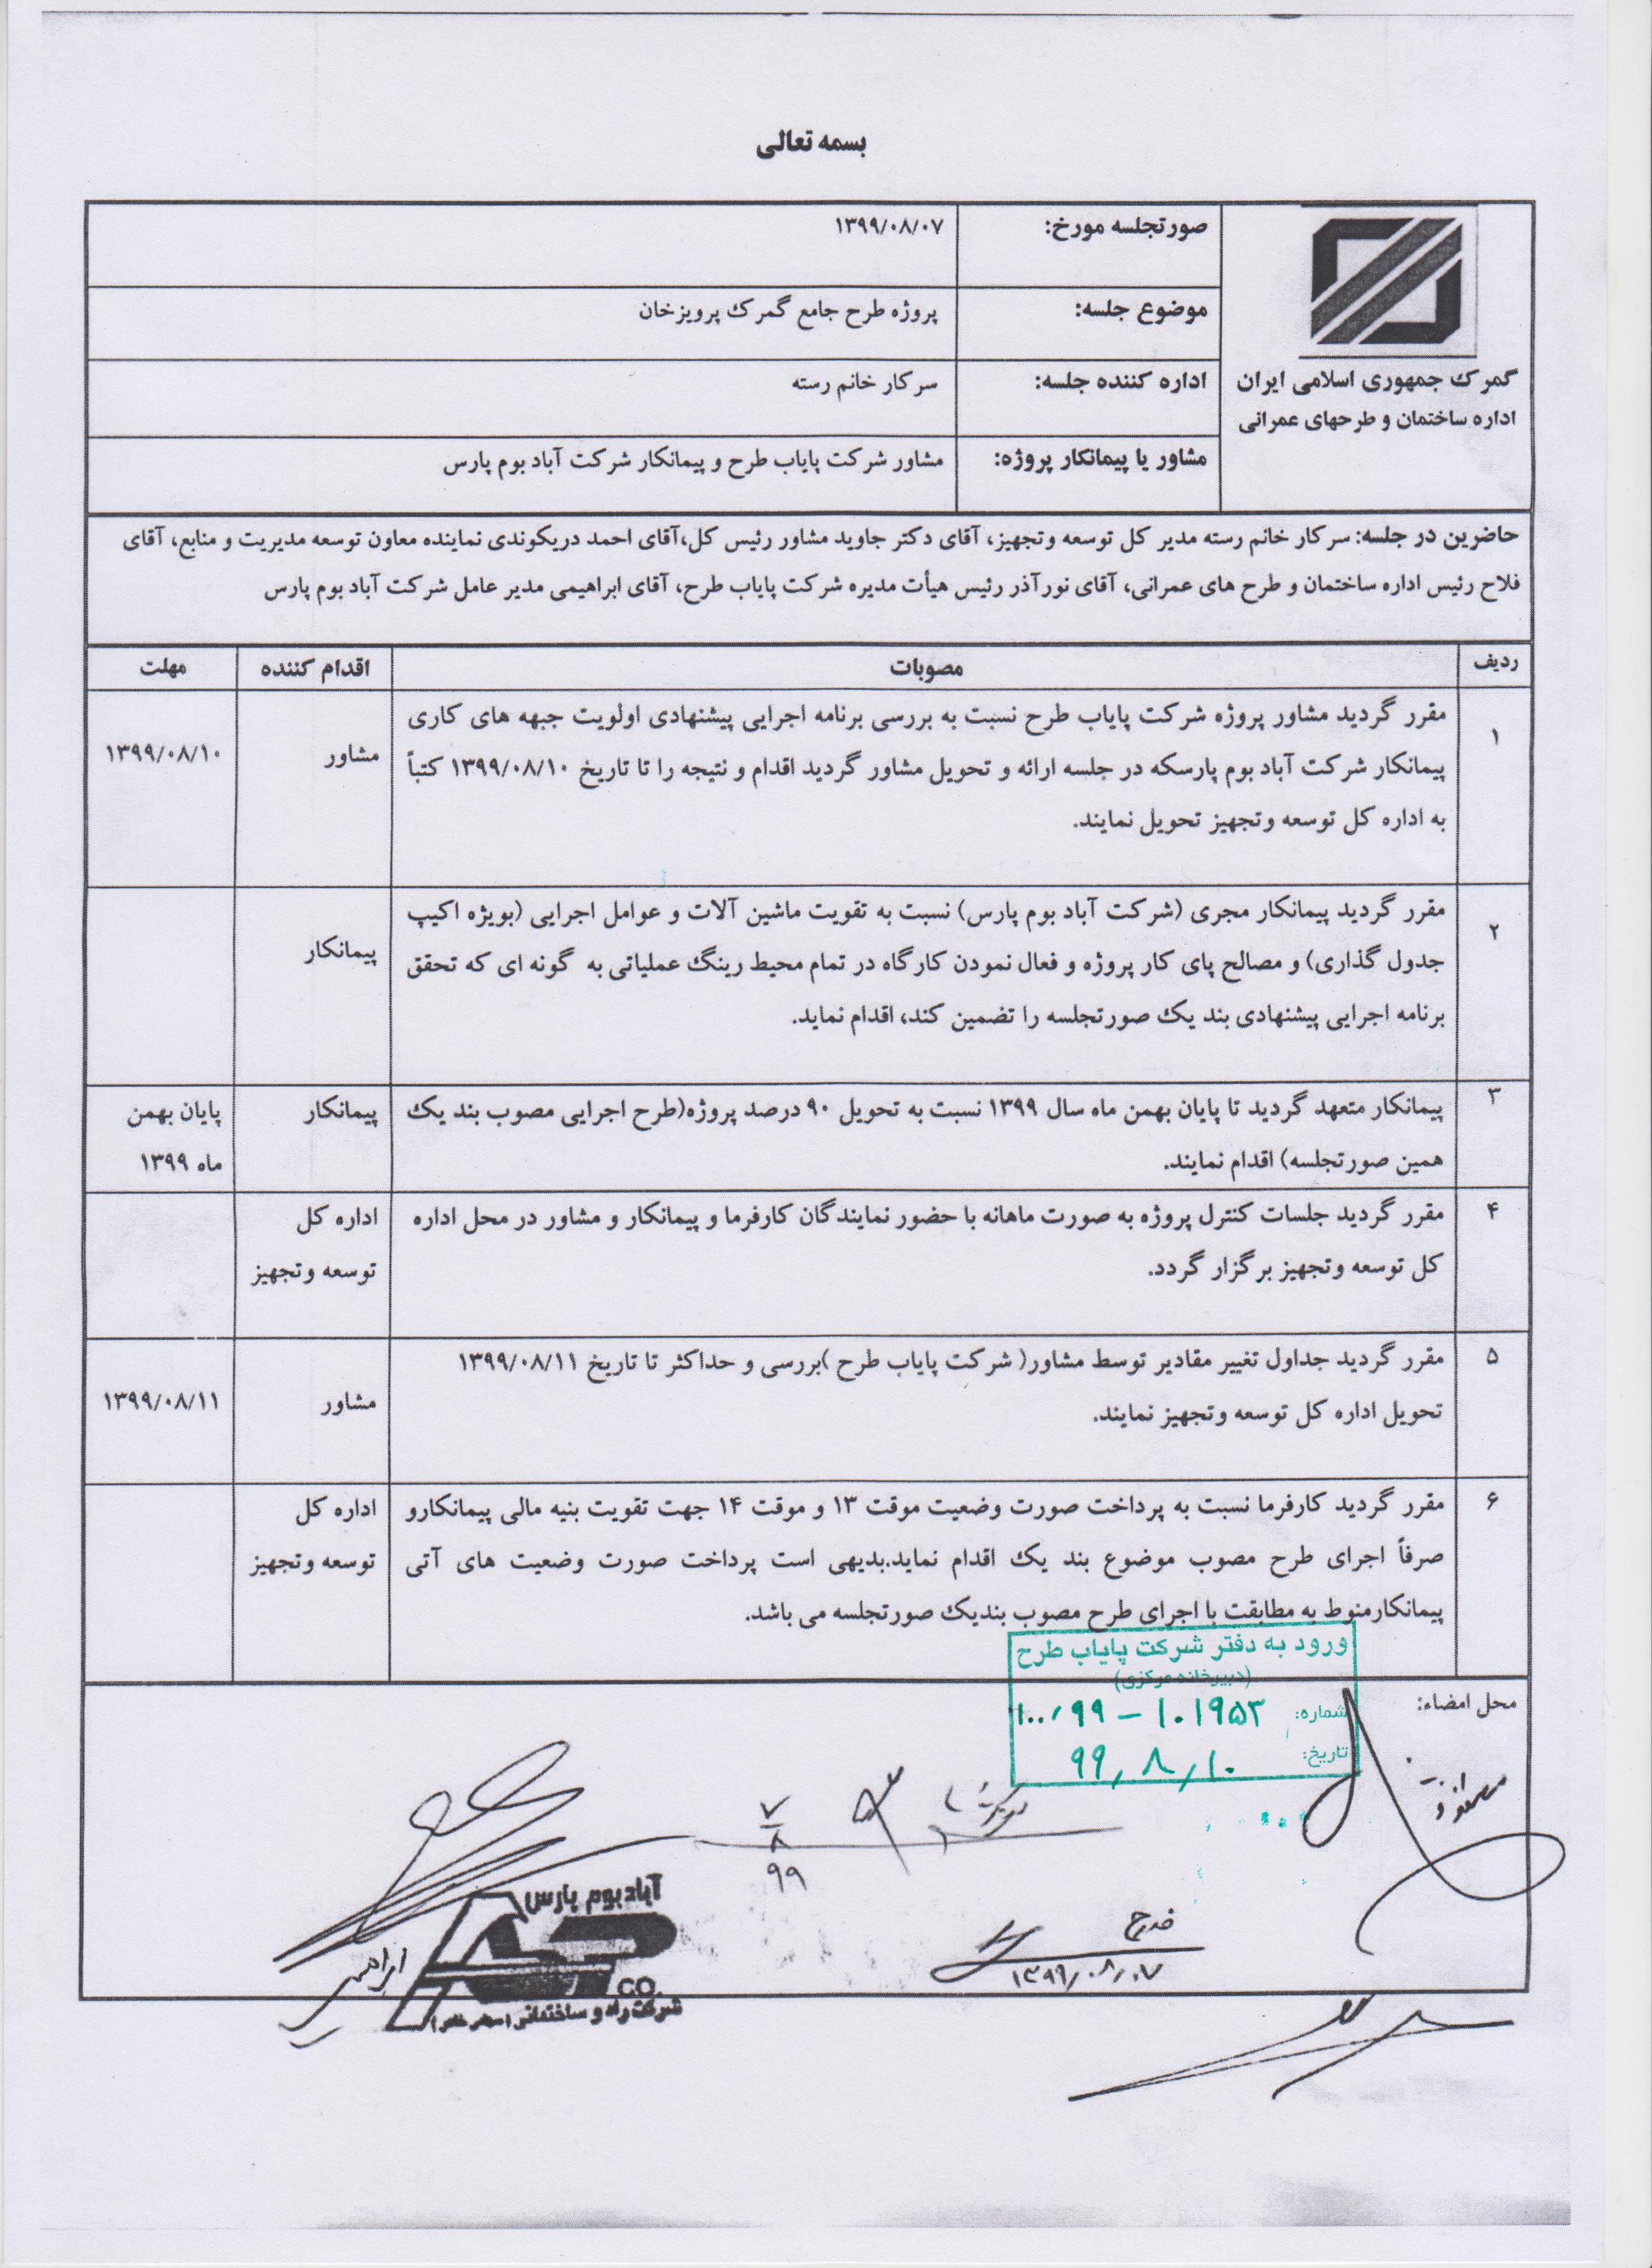 بسمه تعالی
گمرک جمهوری اسلامی ایران
اداره ساختمان و طرحهای عمرانی
صورتجلسه مورخ: ۱۳۹۹/۰۸/۰۷
موضوع جلسه: پروژه طرح جامع گمرک پرویزخان
اداره کننده جلسه: سرکار خانم رسته
مشاور یا پیمانکار پروژه: مشاور شرکت پایاب طرح و پیمانکار شرکت آباد بوم پارس
حاضرین در جلسه: سرکار خانم رسته مدیر کل توسعه وتجهیز، آقای دکتر جاوید مشاور رئیس کل،آقای احمد دریکوندی نماینده معاون توسعه مدیریت و منابع، آقای
فلاح رئیس اداره ساختمان و طرح های عمرانی، آقای نورآذر رئیس هیأت مدیره شرکت پایاب طرح، آقای ابراهیمی مدیر عامل شرکت آباد بوم پارس
ردیف مصوبات اقدام کننده مهلت
۱
مقرر گردید مشاور پروژه شرکت پایاب طرح نسبت به بررسی برنامه اجرایی پیشنهادی اولویت جبهه های کاری
پیمانکار شرکت آباد بوم پارسکه در جلسه ارائه و تحویل مشاور گردید اقدام و نتیجه را تا تاریخ ۱۳۹۹/۰۸/۱۰ کتباً
به اداره کل توسعه وتجهیز تحویل نمایند.
مشاور
۱۳۹۹/۰۸/۱۰
۲
مقرر گردید پیمانکار مجری (شرکت آباد بوم پارس) نسبت به تقویت ماشین آلات و عوامل اجرایی (بویژه اکیپ
جدول گذاری) و مصالح پای کار پروژه و فعال نمودن کارگاه در تمام محیط رینگ عملیاتی به گونه ای که تحقق
برنامه اجرایی پیشنهادی بند یک صورتجلسه را تضمین کند، اقدام نماید.
پیمانکار
۳
پیمانکار متعهد گردید تا پایان بهمن ماه سال ۱۳۹۹ نسبت به تحویل ۹۰ درصد پروژه(طرح اجرایی مصوب بند یک
همین صورتجلسه) اقدام نمایند.
پیمانکار
پایان بهمن
ماه ۱۳۹۹
۴
مقرر گردید جلسات کنترل پروژه به صورت ماهانه با حضور نمایندگان کارفرما و پیمانکار و مشاور در محل اداره
کل توسعه وتجهیز برگزار گردد.
اداره کل
توسعه وتجهیز
۵
مقرر گردید جداول تغییر مقادیر توسط مشاور( شرکت پایاب طرح )بررسی و حداکثر تا تاریخ ۱۳۹۹/۰۸/۱۱
تحویل اداره کل توسعه وتجهیز نمایند.
مشاور
۱۳۹۹/۰۸/۱۱
۶
مقرر گردید کارفرما نسبت به پرداخت صورت وضعیت موقت ۱۳ و موقت ۱۴ جهت تقویت بنیه مالی پیمانکارو
صرفاً اجرای طرح مصوب موضوع بند یک اقدام نماید.بدیهی است پرداخت صورت وضعیت های آتی
پیمانکارمنوط به مطابقت با اجرای طرح مصوب بندیک صورتجلسه می باشد.
اداره کل
توسعه وتجهیز
محل امضاء:
ورود به دفتر شرکت پایاب طرح
(دبیرخانه مرکزی)
شماره: ۱۰۱۹۵۳ – ۱۰۰/۹۹
تاریخ: ۹۹/۸/۱۰
۷
۸
۹۹
۱۳۹۹/۰۸/۰۷
آباد بوم پارس
CO.
شرکت راه و ساختمانی